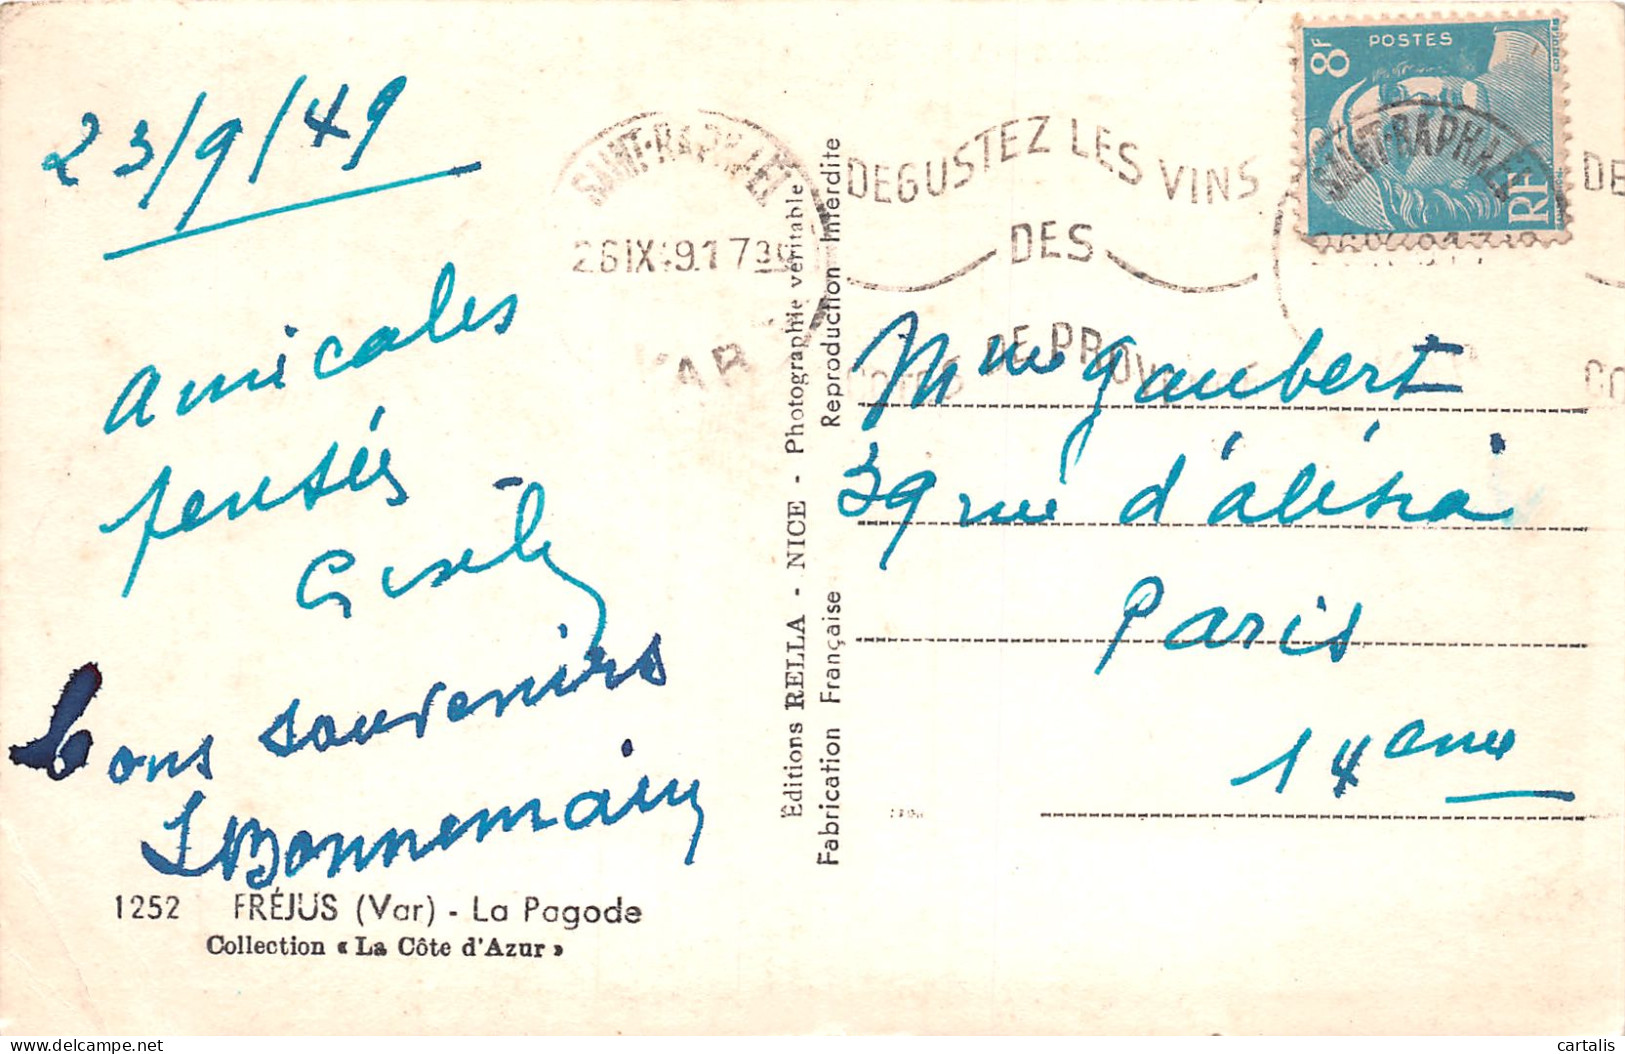 23/9/49
Amicales
pensées
Gisèle
bons souvenirs
Bonnemain
1252 FRÉJUS (Var) - La Pagode
Collection « La Côte d'Azur »
Éditions RELLA - NICE - Photographie véritable
Fabrication Française Reproduction Interdite
SAINT-RAPHAEL
26 IX 49.1730
VAR
DEGUSTEZ LES VINS
DES
COTES DE PROVENCE
8F
POSTES
RF
SAINT-RAPHAEL
DE
CO
Mme Gaubert
39 rue d'Alésia
Paris
14eme
cartalis